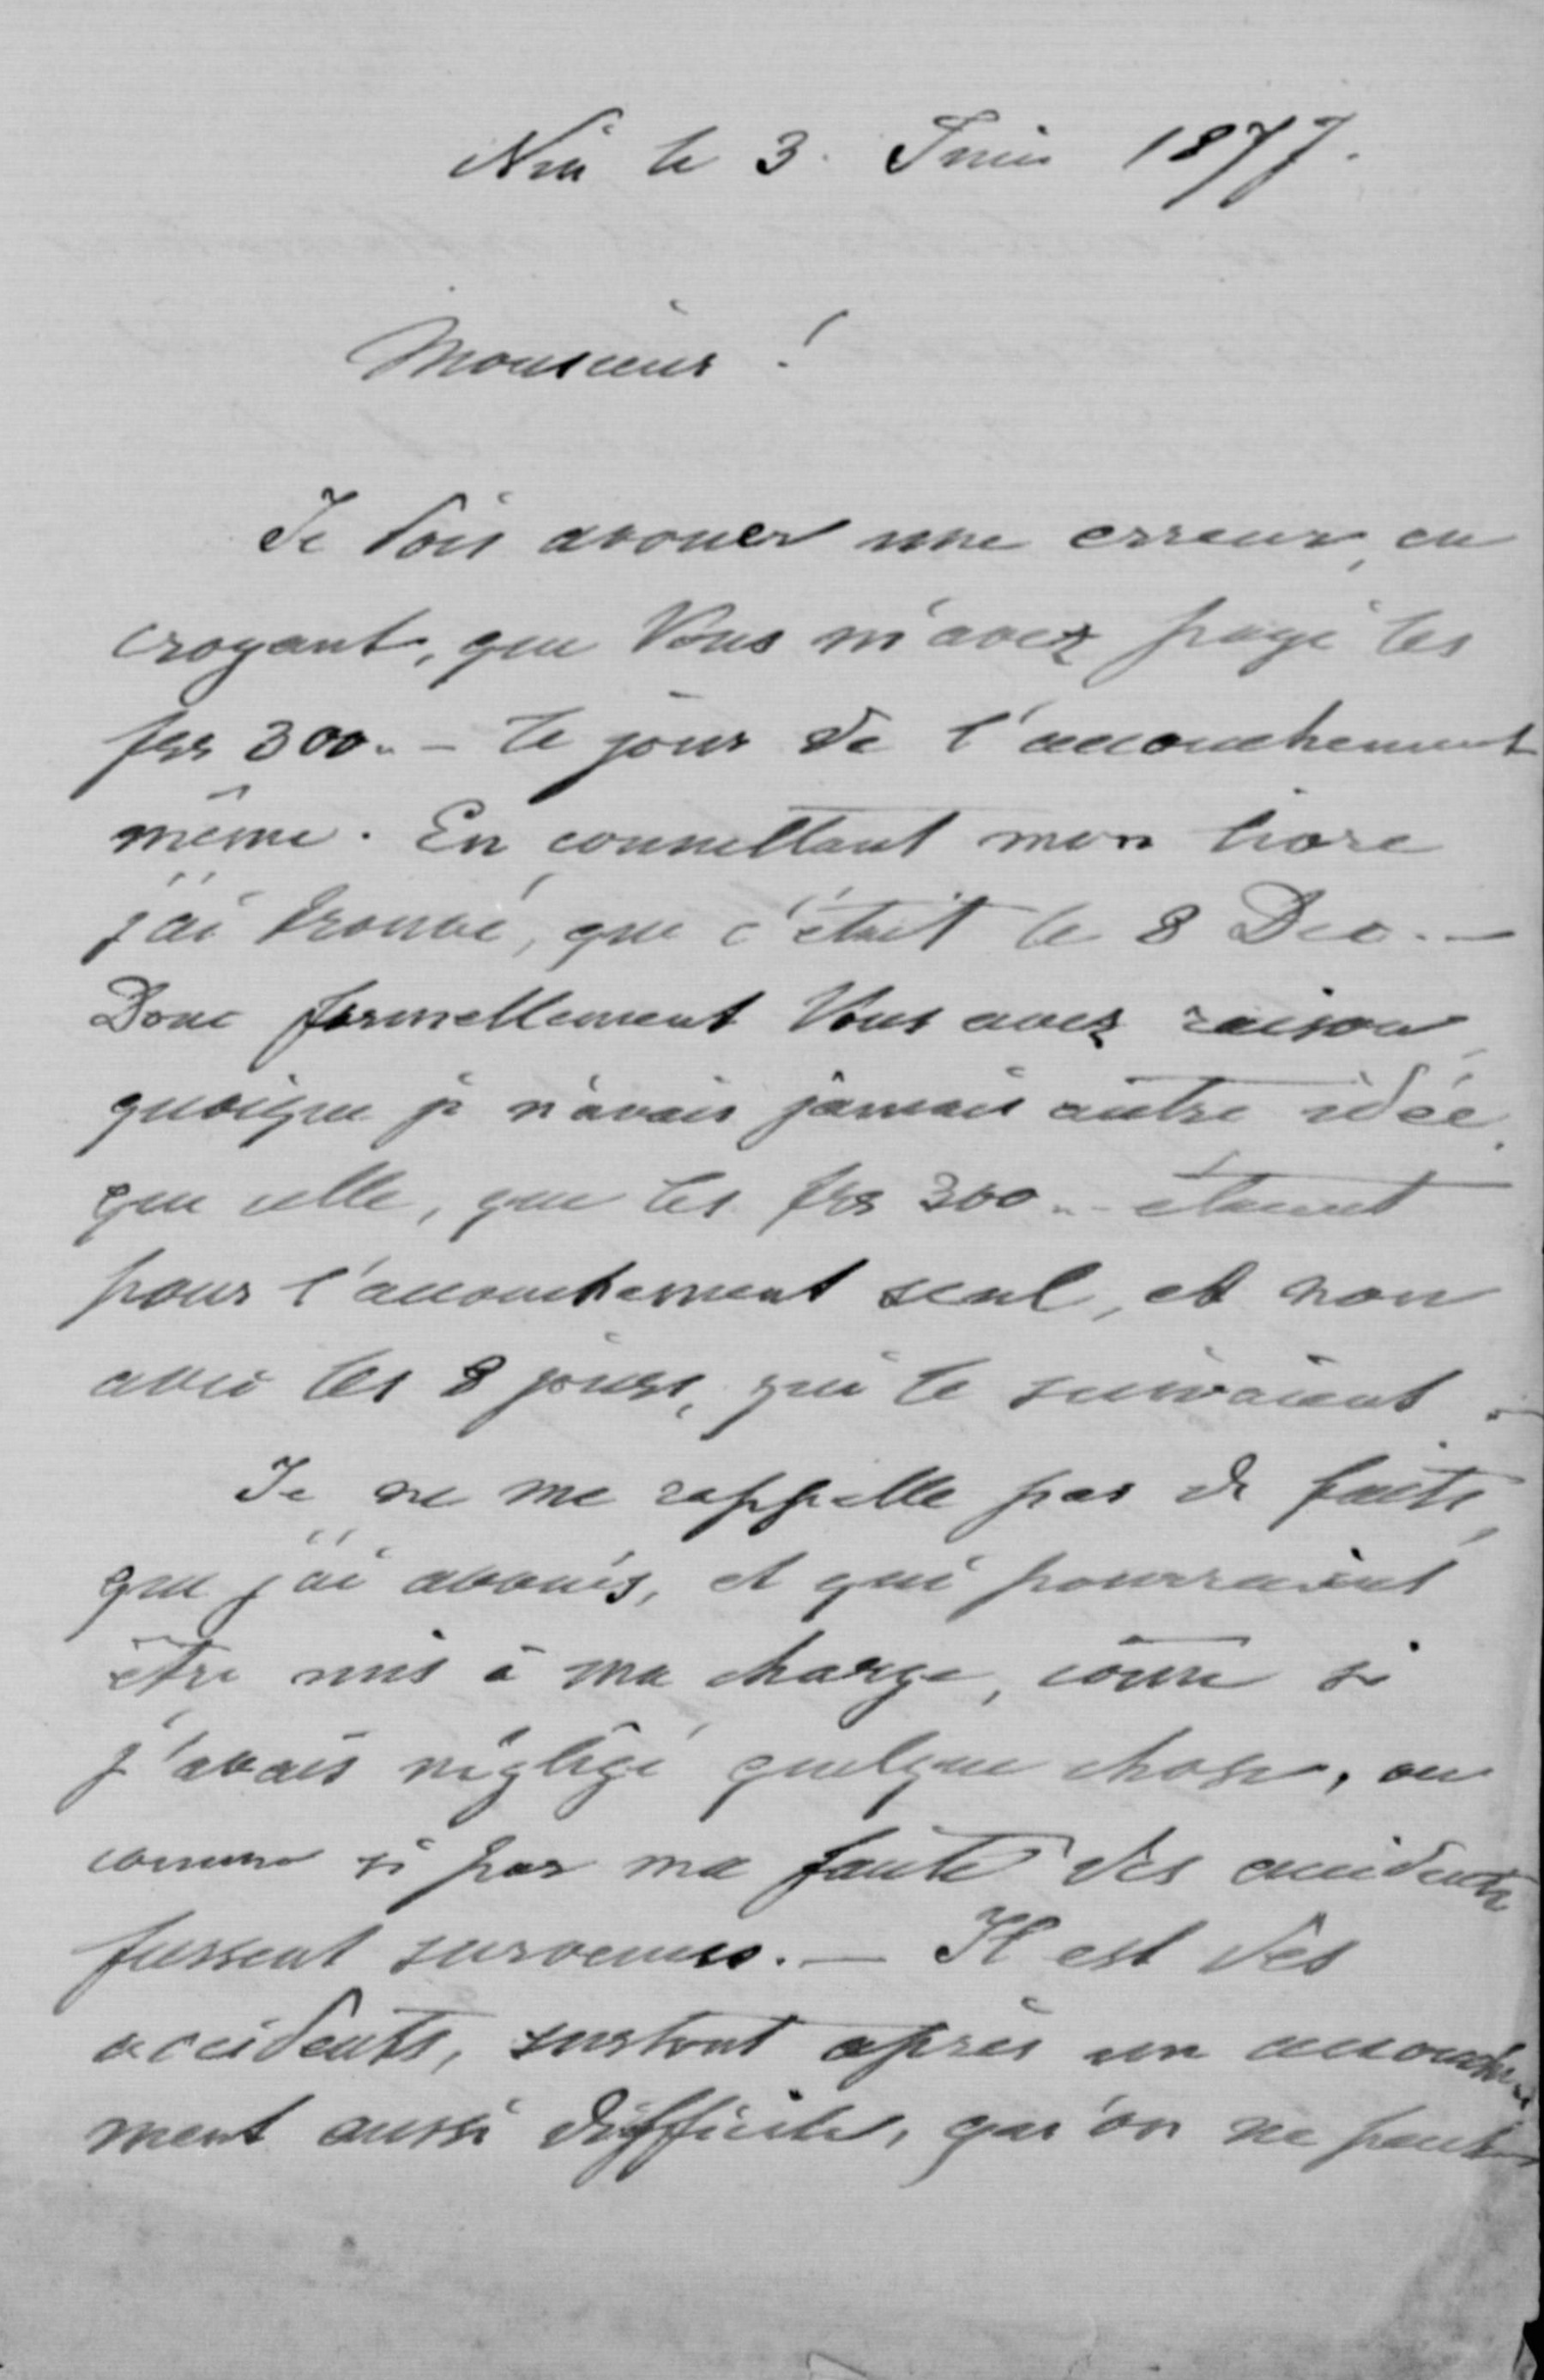 le 3. Juin 1877.
Monsieur !
Je dois avouer une erreur, en
croyant, que Vous m'avez payé les
frs 300.– le jour de l'accouchement
même. En consultant mon livre
j'ai trouvé, que c'était le 8 Dec. –
Donc formellement Vous avez raison,
quoique je n'avais jamais autre idée,
que celle, que les frs 300.– étaient
pour l'accouchement seul, et non
avec les 8 jours, qui le suivaient.
Je ne me rappelle pas de faits,
que j'ai et qui pourraient
être mis à ma charge, come si
j'avais négligé quelque chose, ou
comme si par ma faute des accidents
fussent survenus. – Il est des
accidents, surtout après un accouche-
ment aussi difficile, qu'on ne peut